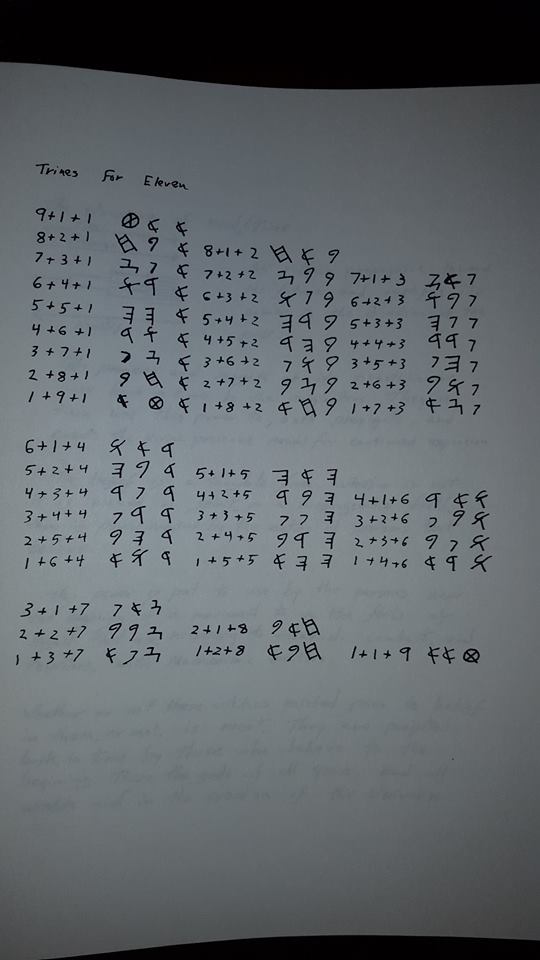 Trines For Eleven
9+1+1 𐤈 𐤀 𐤀
8+2+1 𐤇 𐤁 𐤀 8+1+2 𐤇 𐤀 𐤁
7+3+1 𐤆 𐤂 𐤀 7+2+2 𐤆 𐤁 𐤁 7+1+3 𐤆 𐤀 𐤂
6+4+1 𐤅 𐤃 𐤀 6+3+2 𐤅 𐤂 𐤁 6+2+3 𐤅 𐤁 𐤂
5+5+1 𐤄 𐤄 𐤀 5+4+2 𐤄 𐤃 𐤁 5+3+3 𐤄 𐤂 𐤂
4+6+1 𐤃 𐤅 𐤀 4+5+2 𐤃 𐤄 𐤁 4+4+3 𐤃 𐤃 𐤂
3+7+1 𐤂 𐤆 𐤀 3+6+2 𐤂 𐤅 𐤁 3+5+3 𐤂 𐤄 𐤂
2+8+1 𐤁 𐤇 𐤀 2+7+2 𐤁 𐤆 𐤁 2+6+3 𐤁 𐤅 𐤂
1+9+1 𐤀 𐤈 𐤀 1+8+2 𐤀 𐤇 𐤁 1+7+3 𐤀 𐤆 𐤂
6+1+4 𐤅 𐤀 𐤃
5+2+4 𐤄 𐤁 𐤃 5+1+5 𐤄 𐤀 𐤄
4+3+4 𐤃 𐤂 𐤃 4+2+5 𐤃 𐤁 𐤄 4+1+6 𐤃 𐤀 𐤅
3+4+4 𐤂 𐤃 𐤃 3+3+5 𐤂 𐤂 𐤄 3+2+6 𐤂 𐤁 𐤅
2+5+4 𐤁 𐤄 𐤃 2+4+5 𐤁 𐤃 𐤄 2+3+6 𐤁 𐤂 𐤅
1+6+4 𐤀 𐤅 𐤃 1+5+5 𐤀 𐤄 𐤄 1+4+6 𐤀 𐤃 𐤅
3+1+7 𐤂 𐤀 𐤆
2+2+7 𐤁 𐤁 𐤆 2+1+8 𐤁 𐤀 𐤇
1+3+7 𐤀 𐤂 𐤆 1+2+8 𐤀 𐤁 𐤇 1+1+9 𐤀 𐤀 𐤈